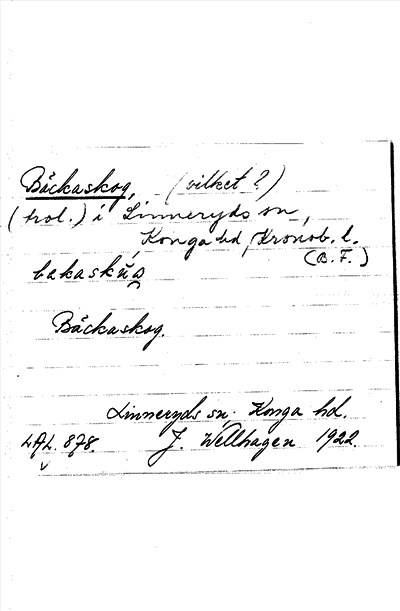 Bäckaskog, (vilket?)
(trol.) i Linneryds sn,
Konga hd, Kronob. l.
(B. F.)
Bäckaskog.
Linneryds sn. Konga hd.
LAL 878. J. Wellhagen 1922.